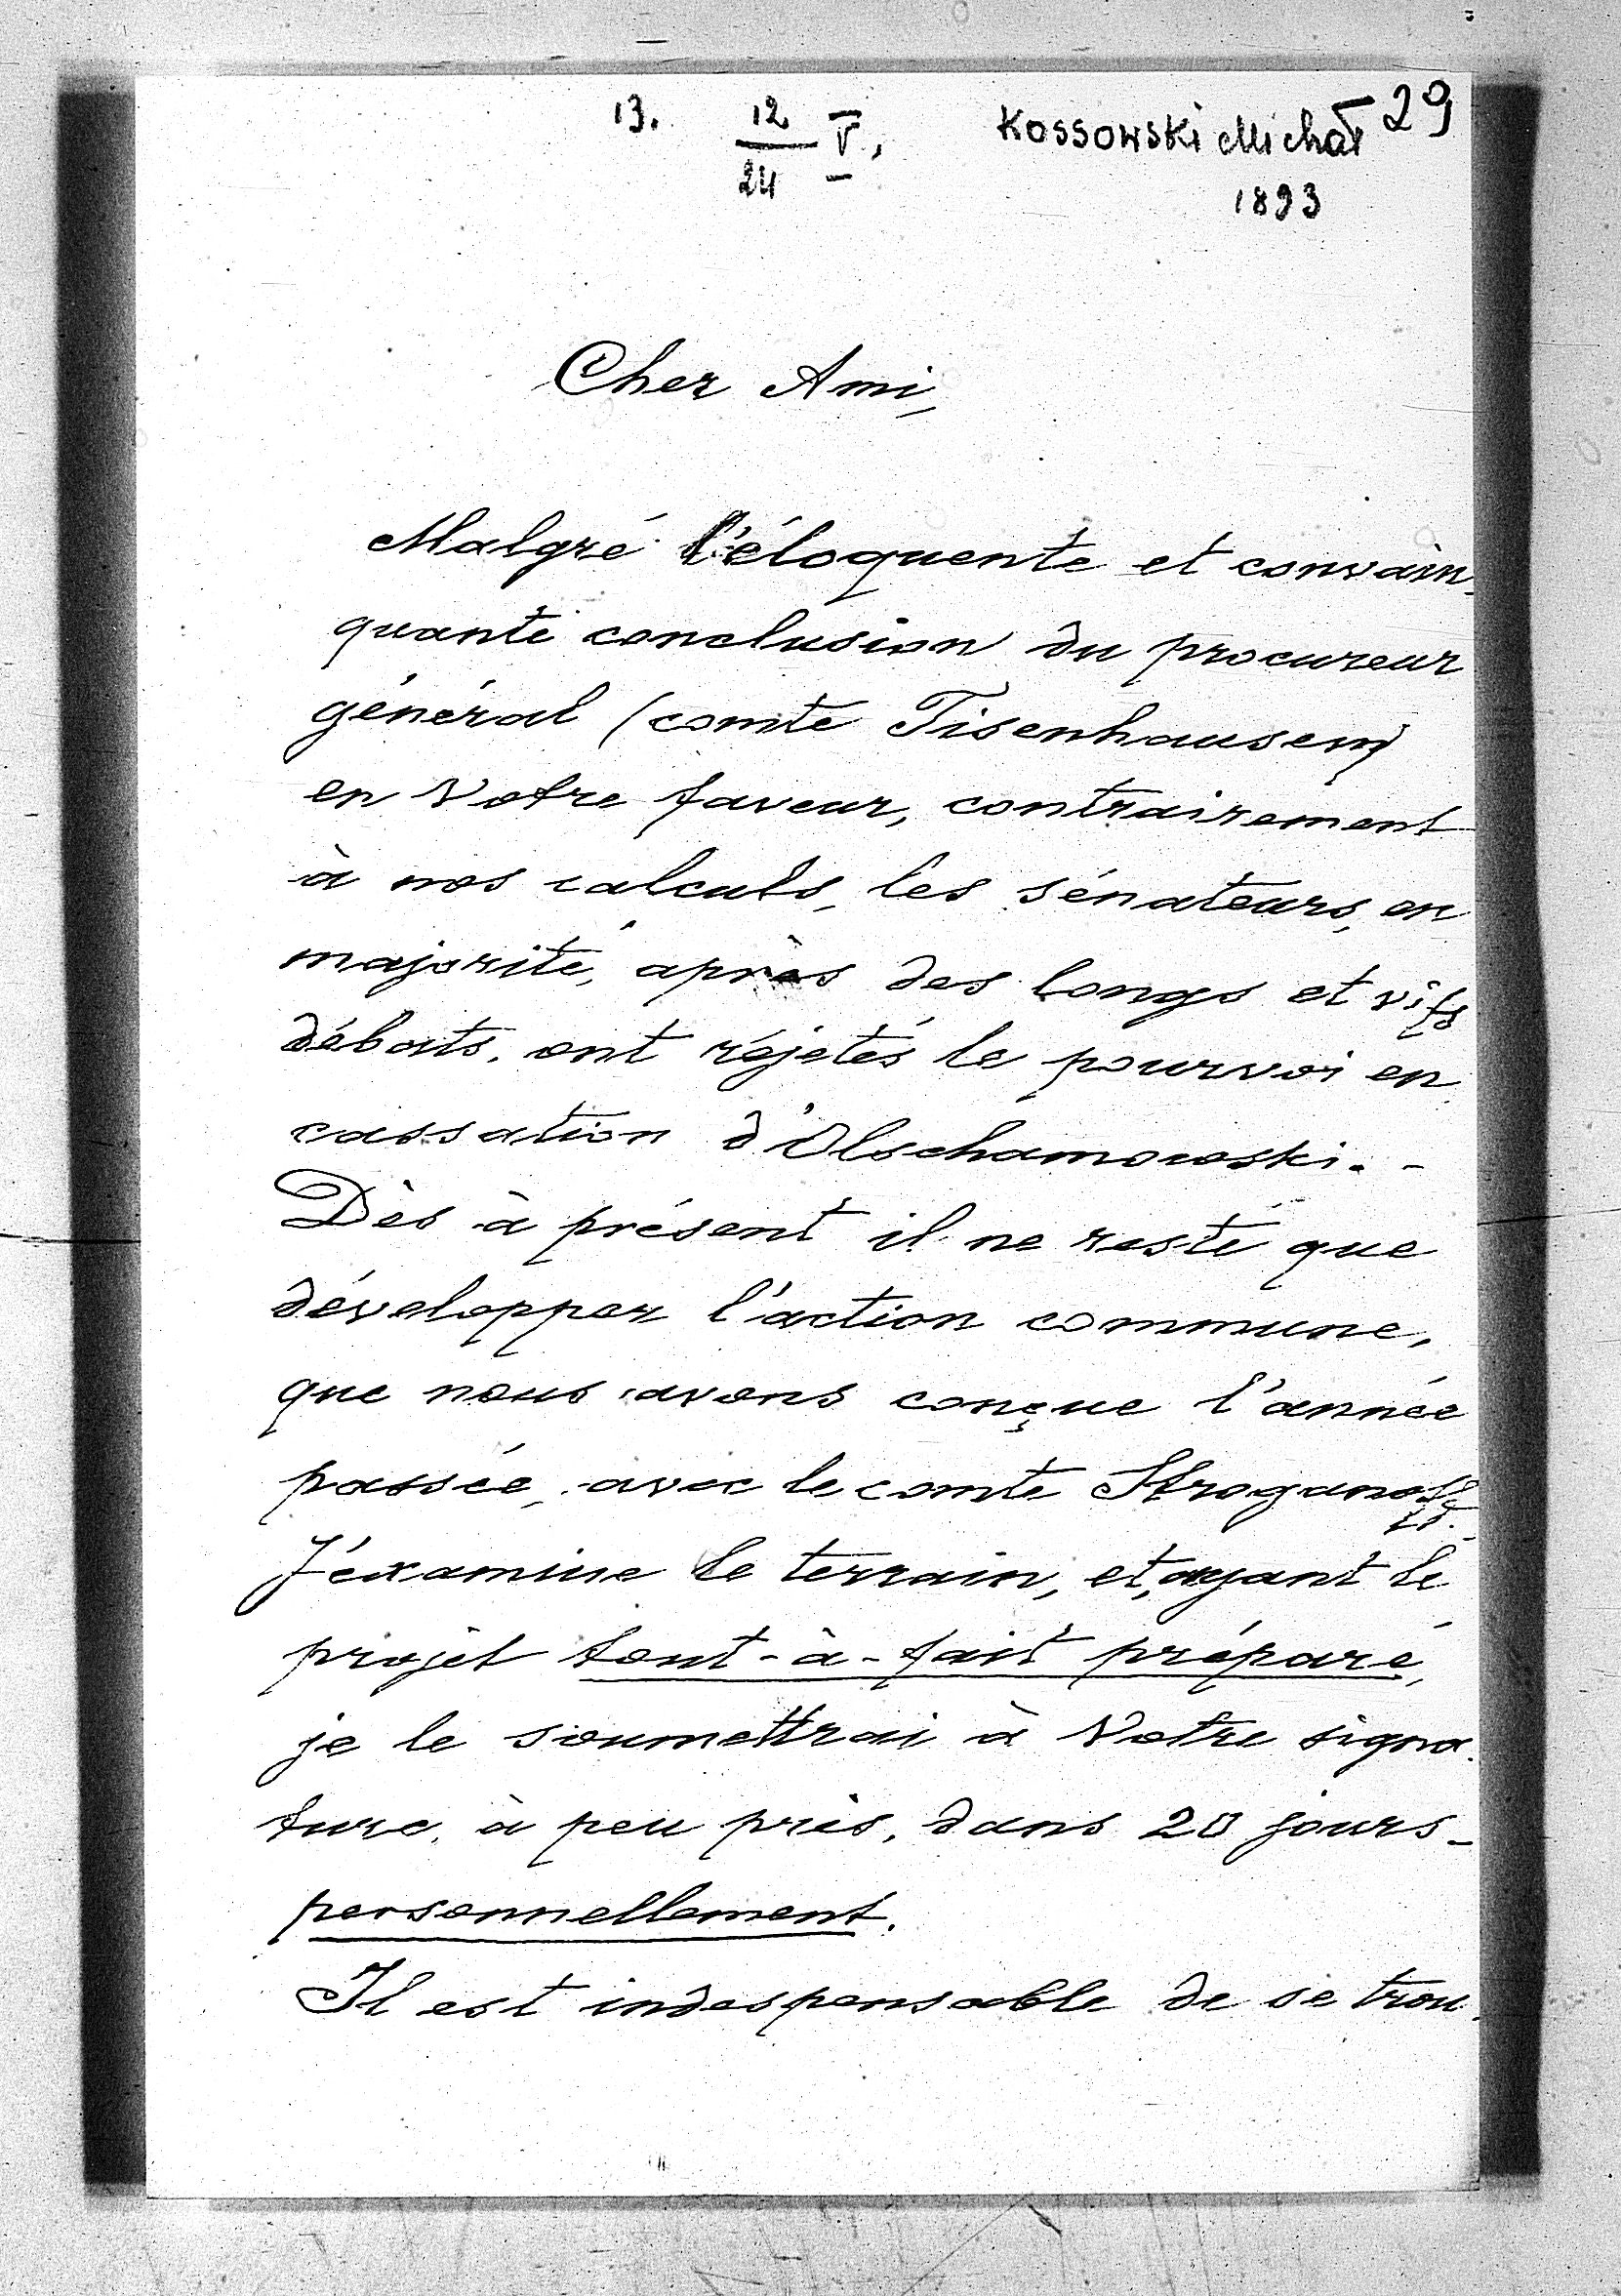 13. 12/24 V, Kossowski Michał 29
1893
Cher Ami,
Malgré l'éloquente et convain-
quante conclusion du procureur
général (comte Tisenhausen)
en Votre faveur, contrairement
à nos calculs, les sénateurs, en
majorité, après des longs et vifs
débats, ont réjetés le pourvoi en
cassation d'Olschamowski. -
Dès à présent il ne reste que
développer l'action commune,
que nous avons conçue l'année
passée, avec le comte Stroganoff.
J'éxamine le terrain, et, ayant le
projèt tout-à-fait préparé,
je le soumettrai à Votre signa-
ture, à peu près, dans 20 jours -
personnellement.
Il est indespensable de se trou-